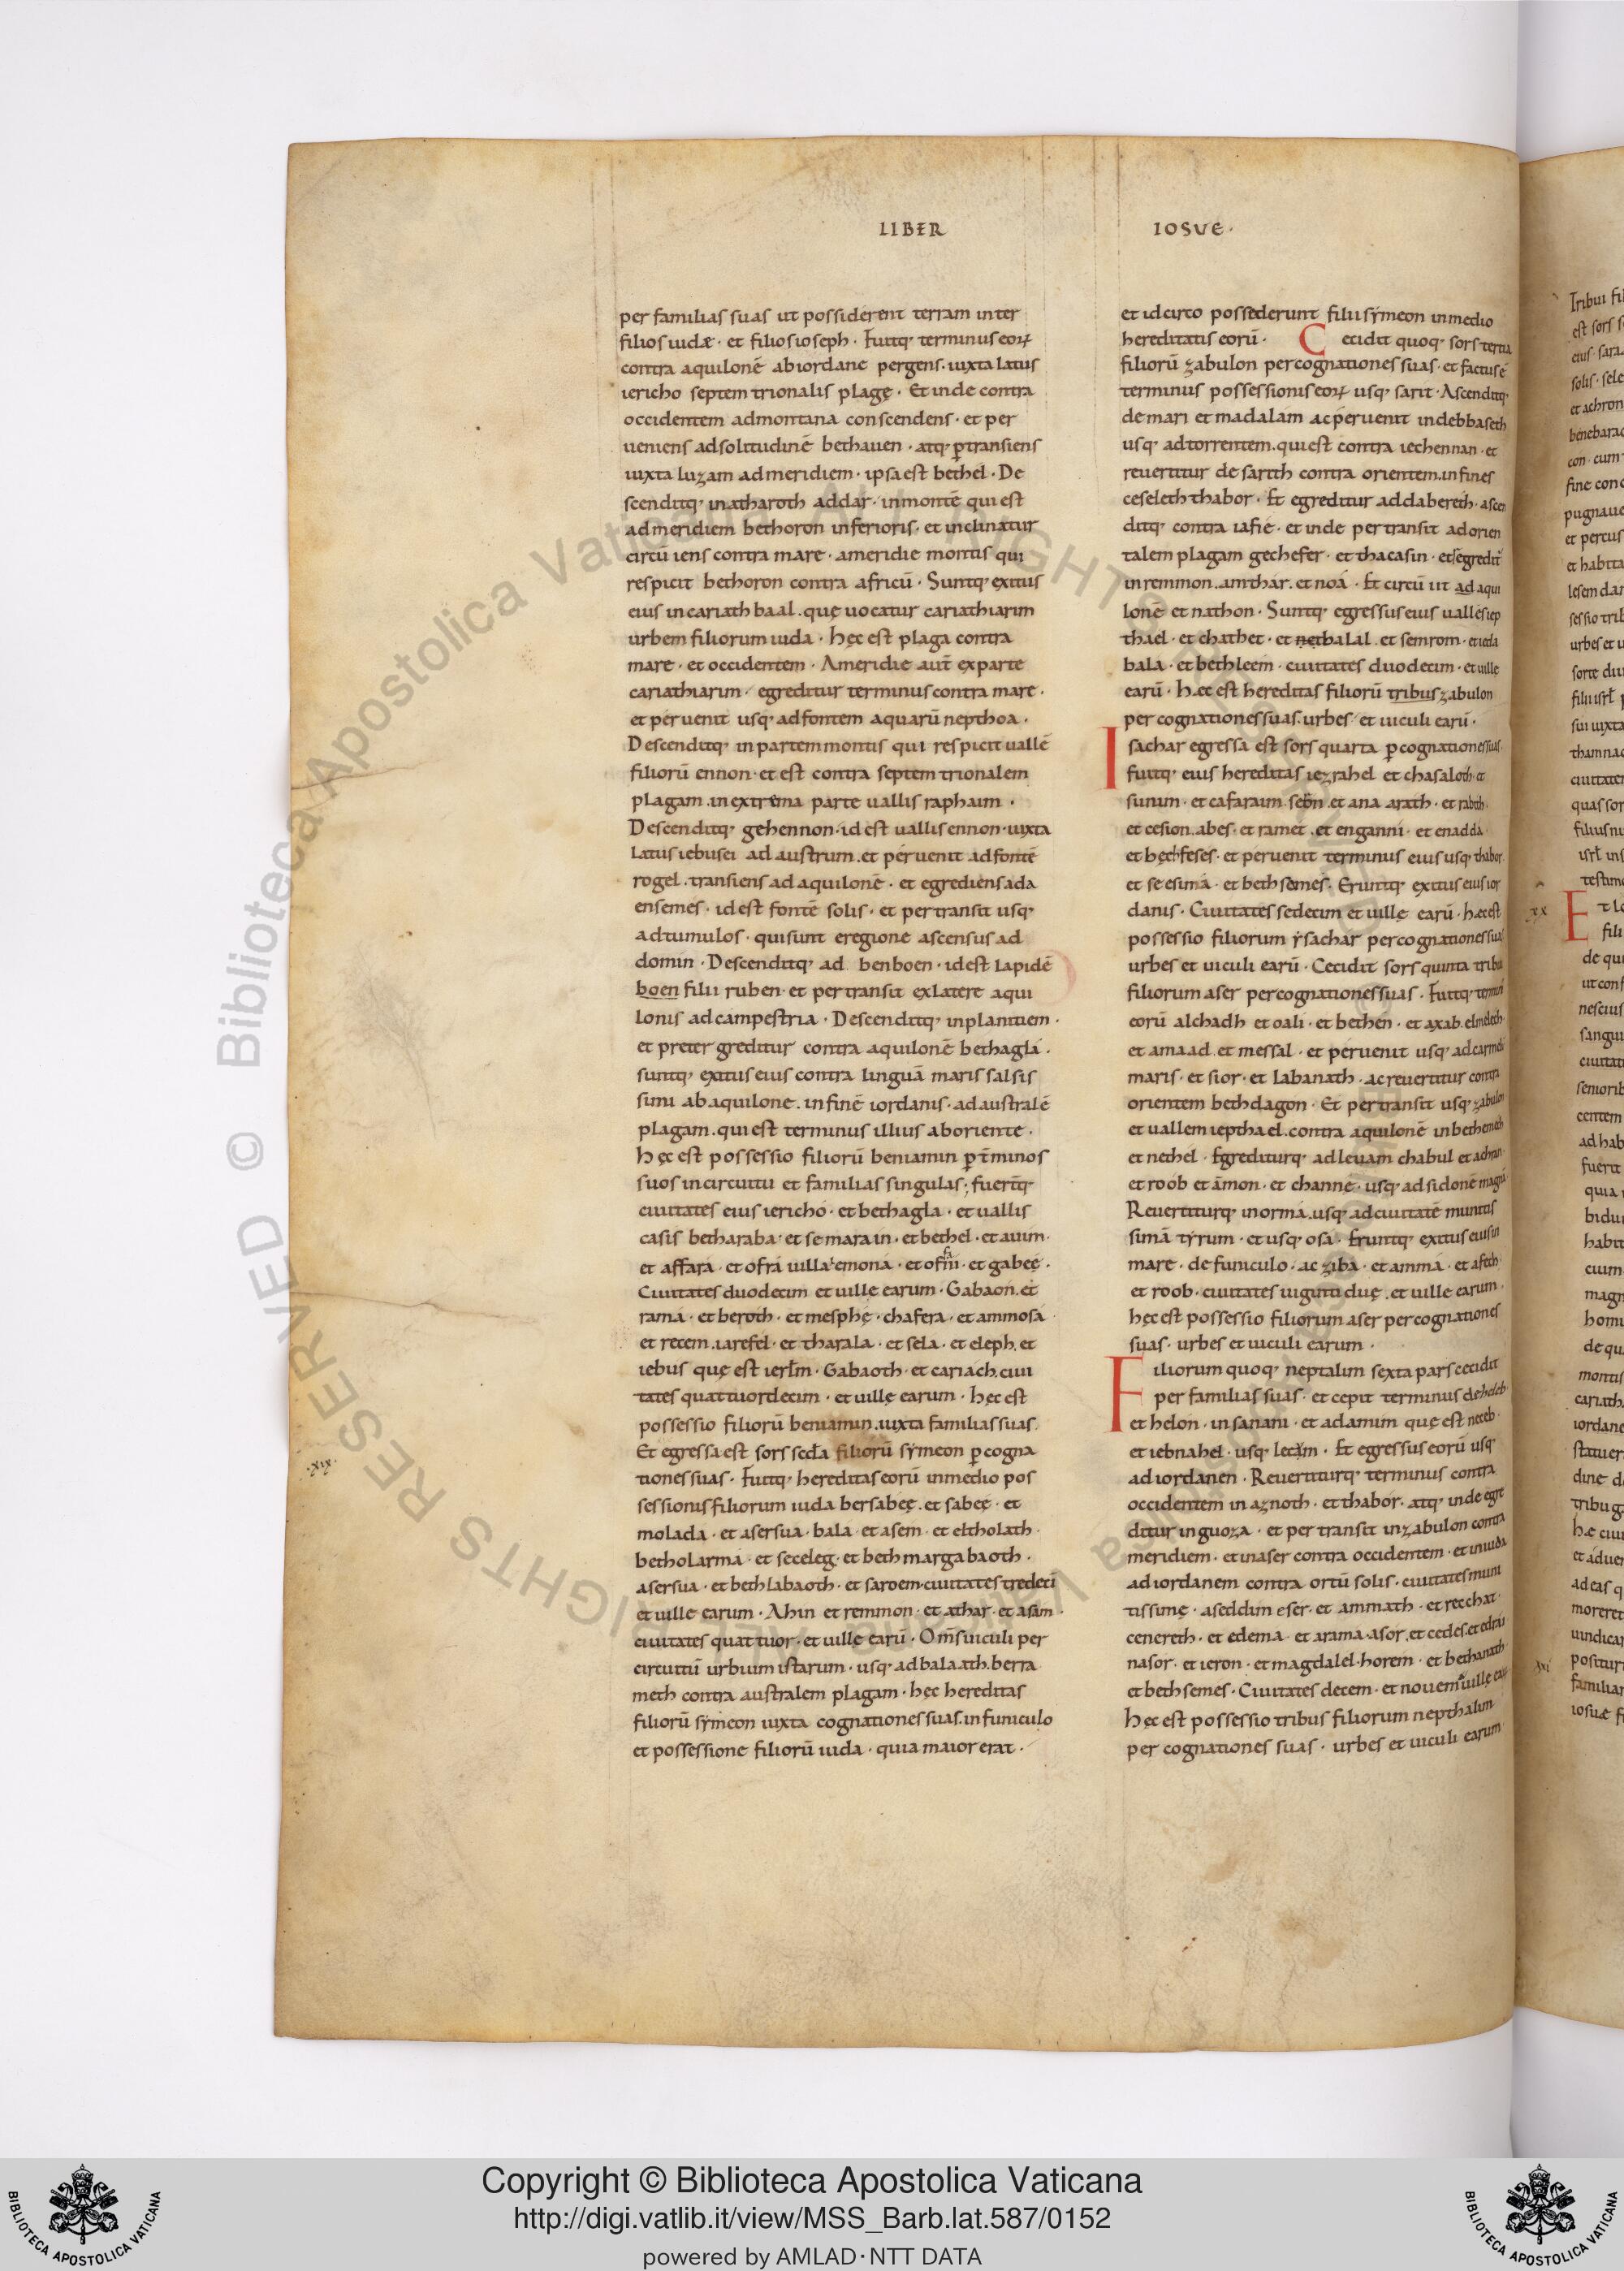 LIBER IOSVE·
per familias suas ut possiderent terram inter
filios iudæ · et filios ioseph · Fuitq; terminus eoꝝ
contra aquilonē ab iordane pergens · iuxta latus
iericho septem trionalis plagę · Et inde contra
occidentem ad montana conscendens · et per
ueniens ad solitudinē bethauen · atq; ꝑtransiens
iuxta luzam ad meridiem · ipsa est bethel · De
scenditq; in atharoth addar · in montē qui est
ad meridiem bethoron inferioris · et inclinatur
circū iens contra mare · a meridie montis qui
respicit bethoron contra africū · Suntq; exitus
eius in cariath baal . quę uocatur cariathiarim
urbem filiorum iuda · hęc est plaga contra
mare · et occidentem · A meridie aut̄ ex parte
cariathiarim · egreditur terminus contra mare ·
et peruenit usq; ad fontem aquarū nepthoa ·
Descenditq; in partem montis qui respicit uallē
filiorū ennon · et est contra septem trionalem
plagam . in extrema parte uallis raphaim ·
Descenditq; gehennon · id est uallis ennon · iuxta
latus iebusei ad austrum . et peruenit ad fontē
rogel . transiens ad aquilonē · et egrediens ad a
ensemes · id est fontē solis · et pertransit usq;
ad tumulos · qui sunt e regione ascensus ad
domin · Descenditq; ad benboen · id est lapidē
boen filii ruben · et pertransit ex latere aqui
lonis ad campestria · Descenditq; in planitiem ·
et preter greditur contra aquilonē bethagla ·
suntq; exitus eius contra linguā maris salsis
simi ab aquilone . in finē iordanis · ad australē
plagam . qui est terminus illius ab oriente ·
hęc est possessio filiorū beniamin ꝑ t̄minos
suos in circuitu et familias singulas ; fuer̄tq;
ciuitates eius iericho · et bethagla · et uallis
casis betharaba · et semarain · et bethel · et auim ·
et affara · et ofra uilla emona · et ofni · et gabeę ·
Ciuitates duodecim et uille earum · Gabaon . et
rama · et beroth · et mesphę · chafera · et ammosa
et recem . iarefel · et tharala · et sela · et eleph . et
iebus quę est ierłm · Gabaoth · et cariach . ciui
tates quattuordecim · et uillę earum · hęc est
possessio filiorū beniamin . iuxta familias suas
·xix· Et egressa est sors sc̄da filiorū sẏmeon ꝑ cogna
tiones suas · Fuitq; hereditas eorū in medio pos
sessionis filiorum iuda bersabeę . et sabeę · et
molada · et asersua · bala · et asem · et eltholath ·
betholarma · et seceleg · et beth margabaoth ·
asersua · et beth labaoth · et saroem · ciuitates tredecī
et uille earum · Ahin et remmon · et athar · et asam ·
ciuitates quattuor · et uillę earū · Om̄s uiculi per
circuitū urbium istarum · usq; ad balaath . berra
meth contra australem plagam · hęc hereditas
filiorū sẏmeon iuxta cognationes suas . in funiculo
et possessione filiorū iuda · quia maior erat ·
et idcirco possederunt filii sẏmeon in medio
hereditatis eorū · Cecidit quoq; sors tertia
filiorū zabulon per cognationes suas · et factus ē
terminus possessionis eoꝝ usq; sarit · Ascenditq;
de mari et madalam ac peruenit in debbaseth
usq; ad torrentem . qui est contra iechennan · et
reuertitur de sarith contra orientem . in fines
ceseleth thabor · Et egreditur ad dabereth · ascen
ditq; contra iafie · et inde pertransit ad orien
talem plagam gechefer · et thacasin · et egredit̄
in remmon . amthar . et noa · Et circū iit ad aqui
lonē et nathon · Suntq; egressus eius uallē siep
thael · et chathet · et balal . et semrom ·
bala · et bethleem · ciuitates duodecim · et uille
earū · hæc est hereditas filiorū tribus zabulon
per cognationes suas . urbes et uiculi earū ·
Isachar egressa est sors quarta ꝑ cognationes suas
fuitq; eius hereditas iezrahel et chasaloth · et
sunum · et cafaraim . et ana arath · et
et cesion . abes · et ramet . et enganni · et enadda ·
et bęchfeses · et peruenit terminus eius usq; thabor .
et seesima · et beth semes · Eruntq; exitus eius ior
danis · Ciuitates sedecim et uillę earū · hæc est
possessio filiorum ẏsachar per cognationes suas
urbes et uiculi earū · Cecidit sors quinta tribui
filiorum aser per cognationes suas · Fuitq;
eorū alchadh et oali · et bethen · et axab . elmelech
et amaad . et messal · et peruenit usq; ad carmeli
maris · et sior · et labanath · ac reuertitur contra
orientem beth dagon · Et pertransit usq; zabulon
et uallem iepthael . contra aquilonē in bethemech
et nethel · Egrediturq; ad leuam chabul et achran ·
et roob et āmon · et channę · usq; ad sidonē magnā
Reuertiturq; in orma . usq; ad ciuitatē muniti
simā tẏrum · et usq; osa · Eruntq; exitus eius in
mare · de funiculo · ac ziba · et amma · et afech
et roob · ciuitates uiginti duę . et uille earum ·
hęc est possessio filiorum aser per cognationes
suas · urbes et uiculi earum ·
Filiorum quoq; neptalim sexta pars cecidit
per familias suas · et cepit terminus de heleb
et helon · in sanani · et adamim quę est neceb ·
et iebnahel · usq; · Et egressus eorū usq;
ad iordanen · Reuertiturq; terminus contra
occidentem in aznoth · et thabor · atq; inde egre
ditur in guoza · et pertransit in zabulon contra
meridiem · et in aser contra occidentem · et in iuda
ad iordanem contra ortū solis · ciuitates muni
tissimę · aseddim eser · et ammath · et recchat ·
cenereth · et edema · et arama · asor . et cedes . et edrai
nasor · et ieron · et magdalel · horem · et bethanath
et beth semes · Ciuitates decem · et nouem uillę
hęc est possessio tribus filiorum nepthalim
per cognationes suas · urbes et uiculi earum ·
Copyright © Biblioteca Apostolica Vaticana
http://digi.vatlib.it/view/MSS_Barb.lat.587/0152
powered by AMLAD·NTT DATA
BIBLIOTECA APOSTOLICA VATICANA
BIBLIOTECA APOSTOLICA VATICANA